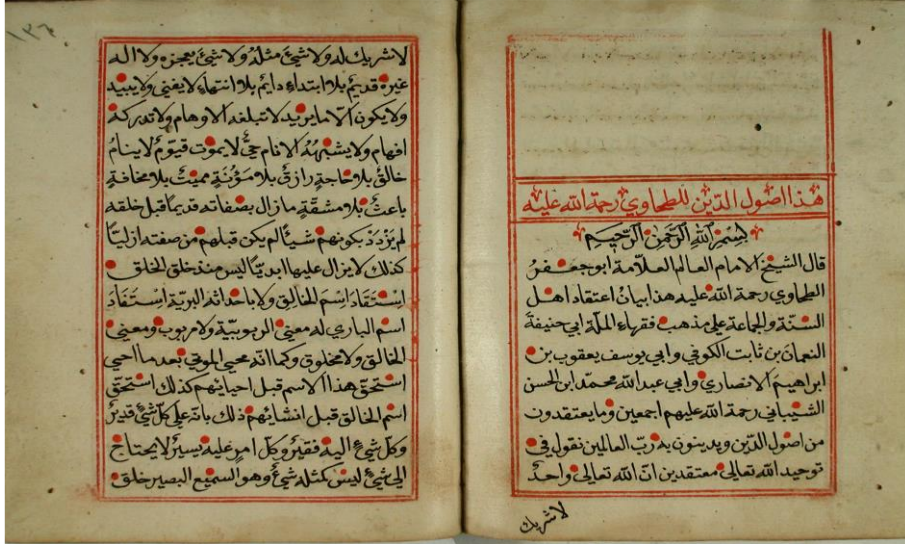 هذا اصول الدين للطحاوي رحمة الله عليه
بسم الله الرحمن الرحيم
قال الشيخ الامام العالم العلامة ابو جعفر
الطحاوي رحمة الله عليه هذا بيان اعتقاد اهل
السنة والجماعة على مذهب فقهاء الملة ابي حنيفة
النعمان بن ثابت الكوفي وابي يوسف يعقوب بن
ابراهيم الانصاري وابي عبد الله محمد ابن الحسن
الشيباني رحمة الله عليهم اجمعين وما يعتقدون
من اصول الدين ويدينون به رب العالمين نقول في
توحيد الله تعالى معتقدين ان الله تعالى واحد
لا شريك
١٣٦
لا شريك له ولا شيئ مثله ولا شيئ يعجزه ولا اله
غيره قديم بلا ابتداء دايم بلا انتهاء لا يفنى ولا يبيد
ولا يكون الا ما يريد لا تبلغه الاوهام ولا تدركه
افهام ولا يشبهه الانام حي لا يموت قيوم لا ينام
خالق بلا حاجة رازق بلا مؤنة مميت بلا مخافة
باعث بلا مشقة ما زال بصفاته قديما قبل خلقه
لم يزدد بكونهم شيئا لم يكن قبلهم من صفته ازليا
كذلك لا يزال عليها ابديا ليس منذ خلق الخلق
استفاد اسم الخالق ولا باحداثه البرية استفاد
اسم الباري له معنى الربوبية ولا مربوب ومعنى
الخالق ولا مخلوق وكما انه محيي الموتى بعد ما احيى
استحق هذا الاسم قبل احيائهم كذلك استحق
اسم الخالق قبل انشائهم ذلك بانه على كل شيئ قدير
وكل شيئ اليه فقير وكل امر عليه يسير لا يحتاج
الى شيئ ليس كمثله شيئ وهو السميع البصير خلق